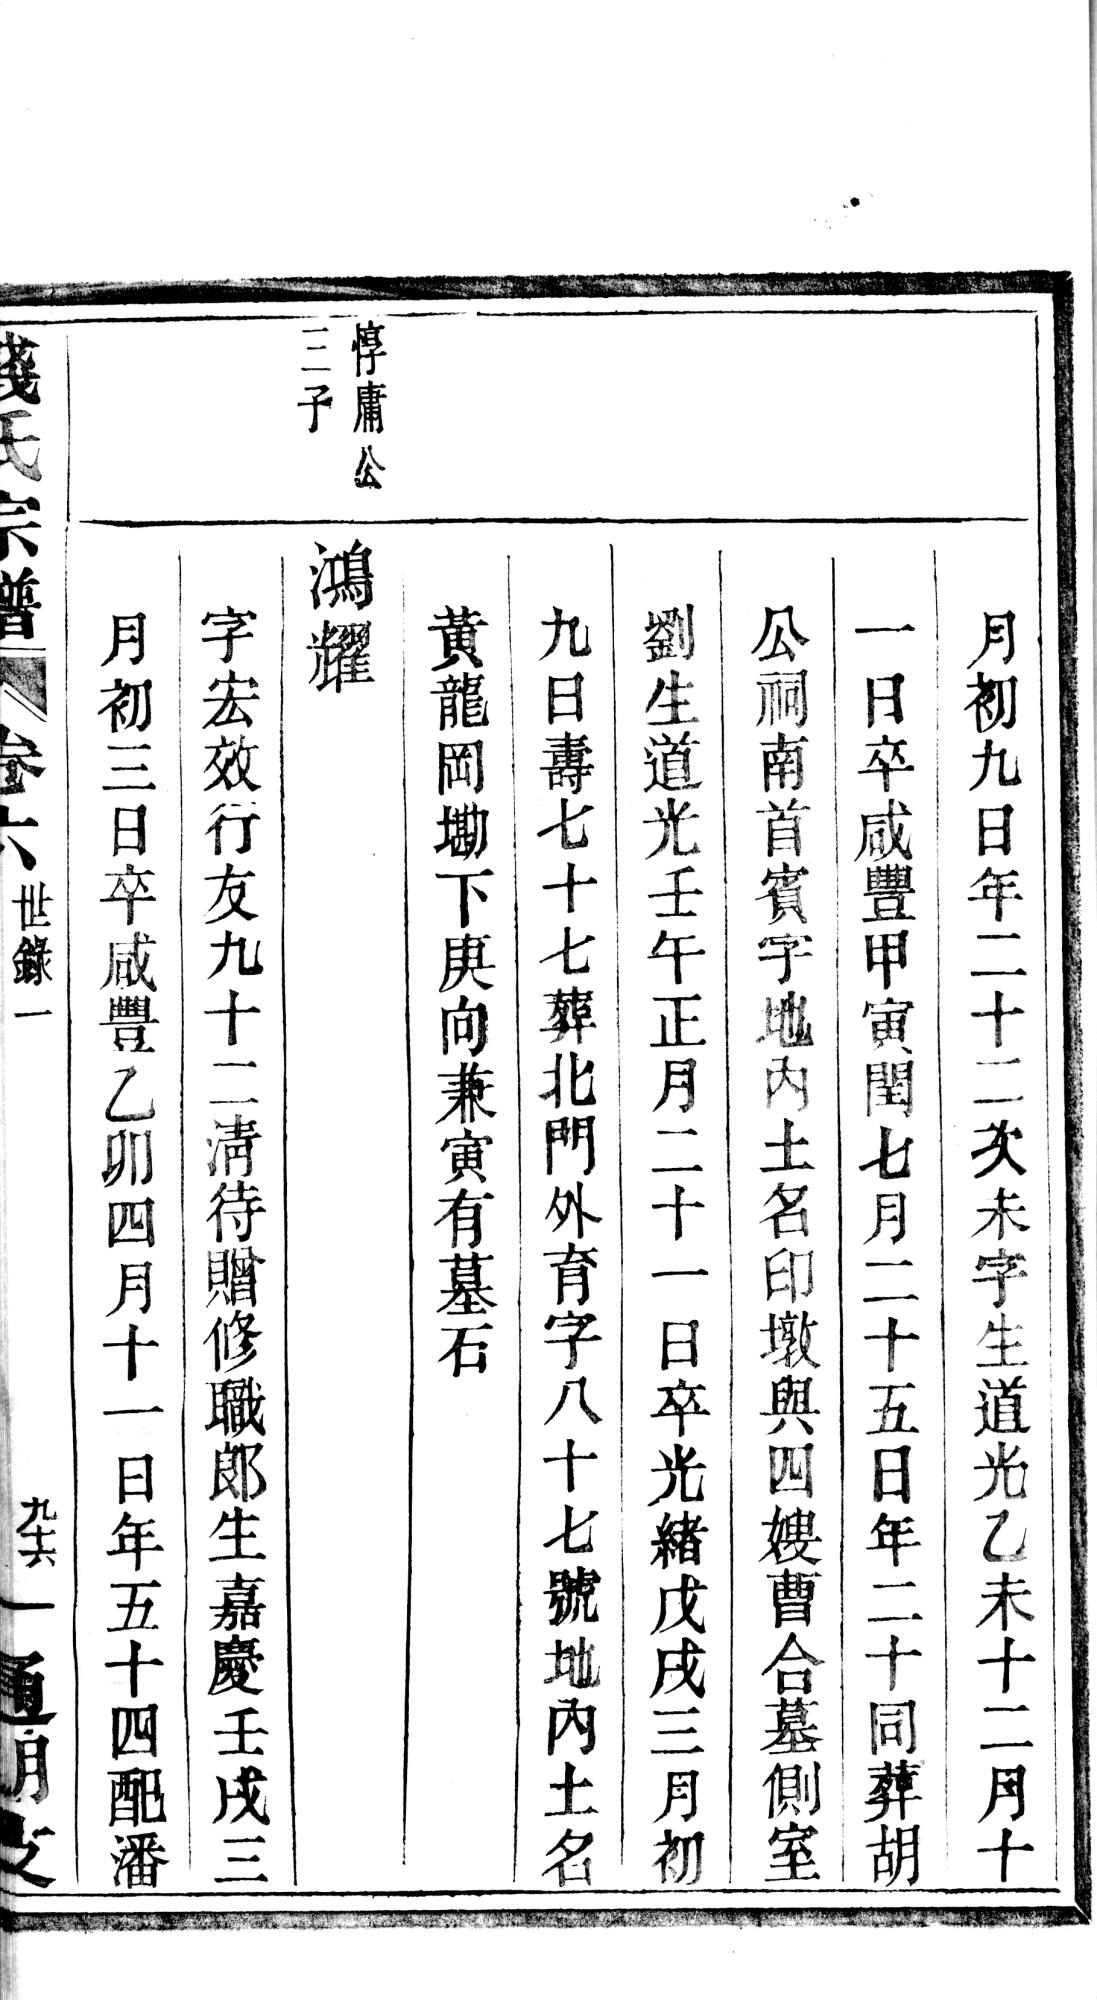 月初九日年二十二次未字生道光乙未十二月十
一日卒咸豐甲寅閏七月二十五日年二十同葬胡
公祠南首賓字地內土名印墩與四嫂曹合墓側室
劉生道光壬午正月二十一日卒光緒戊戌三月初
九日壽七十七葬北門外育字八十七號地內土名
黃龍岡墈下庚向兼寅有墓石
惇庸公
三子
鴻耀
字宏效行友九十二清待贈修職郎生嘉慶壬戌三
月初三日卒咸豐乙卯四月十一日年五十四配潘
錢氏宗譜 卷六 世錄一 九十六 通明支